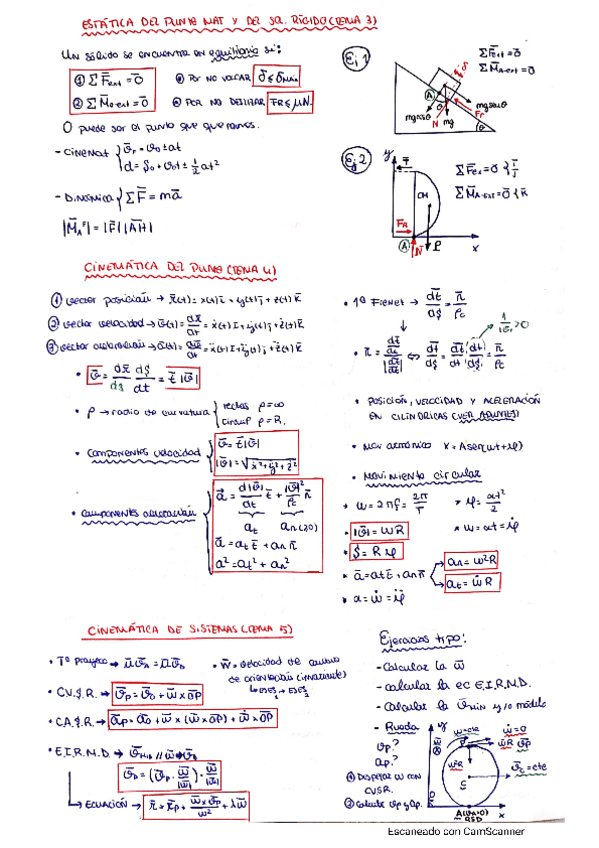 ESTÁTICA DEL PUNTO MAT Y DEL SQ. RÍGIDO (TEMA 3)
Un sólido se encuentra en equilibrio si:
① ΣF̄ext = 0̄
② ΣM̄o·ext = 0̄
⊛ Por no volcar δ ≤ δmáx
⊛ Por no deslizar FR ≤ μN.
O puede ser el punto que queramos.
- Cinemat { v̄r = v0 ± at
d = S0 + v0t ± 1/2 at²
- Dinámica { ΣF̄ = mā
|M̄A^F| = |F̄| |ĀH|
Ej 1
ΣF̄ext = 0̄
ΣM̄A·ext = 0̄
δ
A
O
mg cosθ
N
mg
FR
mg senθ
θ
Ej 2
y
T̄
CM
FR
A
N̄
P̄
x
ΣF̄ext = 0̄ { ī
j̄
ΣM̄A·ext = 0̄ { k̄
CINEMÁTICA DEL PUNTO (TEMA 4)
① Vector posición → r̄(t) = x(t)ī + y(t)j̄ + z(t)k̄
② Vector velocidad → v̄(t) = dr̄/dt = ẋ(t)ī + ẏ(t)j̄ + ż(t)k̄
③ Vector aceleración → ā(t) = dv̄/dt = ẍ(t)ī + ÿ(t)j̄ + z̈(t)k̄
• v̄ = dr̄/dS dS/dt = t̄ |v̄|
• ρ → radio de curvatura { rectas ρ = ∞
circunf ρ = R.
• Componentes velocidad { v̄ = t̄ |v̄|
|v̄| = √(ẋ² + ẏ² + ż²)
• Componentes aceleración { ā = d|v̄|/dt t̄ + |v̄|²/ρc n̄
at an (≥0)
ā = at t̄ + an n̄
a² = at² + an²
• 1ª Frenet → dt̄/dS = n̄/ρc
1/|v̄| > 0
• n̄ = (dt̄/dt)/|dt̄/dt| ⇔ dt̄/dS = dt̄/dt (dt/dS) = n̄/ρc
• POSICIÓN, VELOCIDAD Y ACELERACIÓN
EN CILÍNDRICAS (VER APUNTES)
• Mov armónico x = A sen(ωt + φ)
• Movimiento circular
• ω = 2πf = 2π/T
• φ = αt²/2
• |v̄| = ωR
• ω = αt = φ̇
• S = Rφ
• ā = at t̄ + an n̄ → an = ω²R
at = ω̇R
• α = ω̇ = φ̈
CINEMÁTICA DE SISTEMAS (TEMA 5)
• Tª proyecc → ūv̄A = ūv̄B
• w̄ = velocidad de cambio
de orientación (invariante)
• C.V.S.R. → v̄P = v̄O + w̄ × ŌP
• C.A.S.R. → āP = āO + w̄ × (w̄ × ŌP) + w̄̇ × ŌP
• E.I.R.M.D. → v̄MIN // w̄
v̄D = (v̄P · w̄/|w̄|) · w̄/|w̄|
ECUACIÓN → r̄ = r̄P + (w̄ × v̄P)/w² + λw̄
Ejercicios tipo:
- Calcular la w̄
- Calcular la ec E.I.R.M.D.
- Calcular la v̄min y/o módulo
- Rueda
vP?
aP?
① Despejar w con
CVSR.
② Calcular vP y aP.
y
w̄ = cte
ẇ = 0
P
v̄P
v̄C = cte
C
A(vA=0)
x
Escaneado con CamScanner